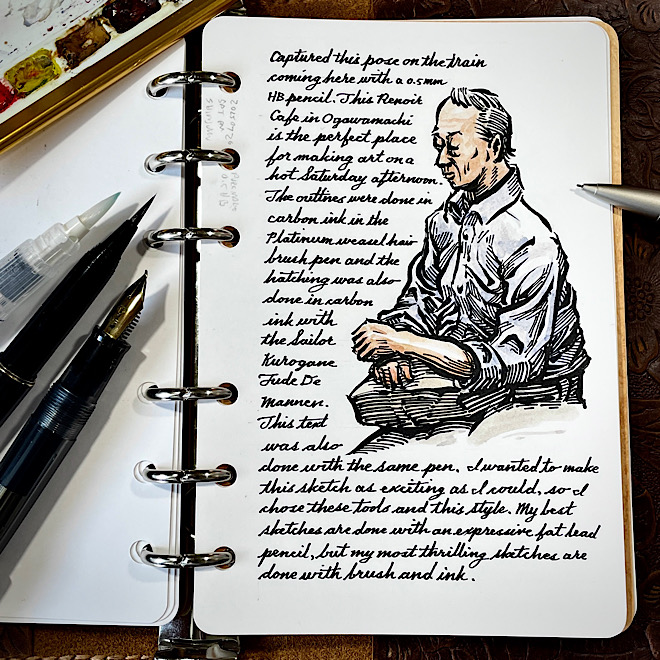 Captured this pose on the train
coming here with a 0.5mm
HB pencil. This Renoir
Cafe in Ogawamachi
is the perfect place
for making art on a
hot Saturday afternoon.
The outlines were done in
carbon ink in the
Platinum weasel hair
brush pen and the
hatching was also
done in carbon
ink with
the Sailor
Kurogane
Fude De
Mannen.
This text
was also
done with the same pen. I wanted to make
this sketch as exciting as I could, so I
chose these tools and this style. My best
sketches are done with an expressive fat lead
pencil, but my most thrilling sketches are
done with brush and ink.